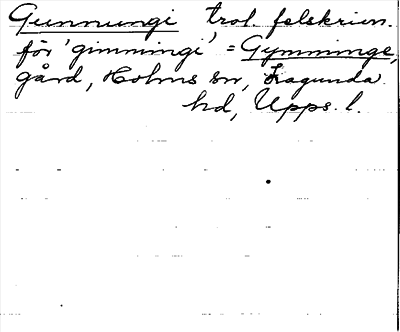 Gunnungi trol. felskriven.
för 'gimmingi' = Gymminge,
gård, Holms sn, Lagunda
hd, Upps. l.